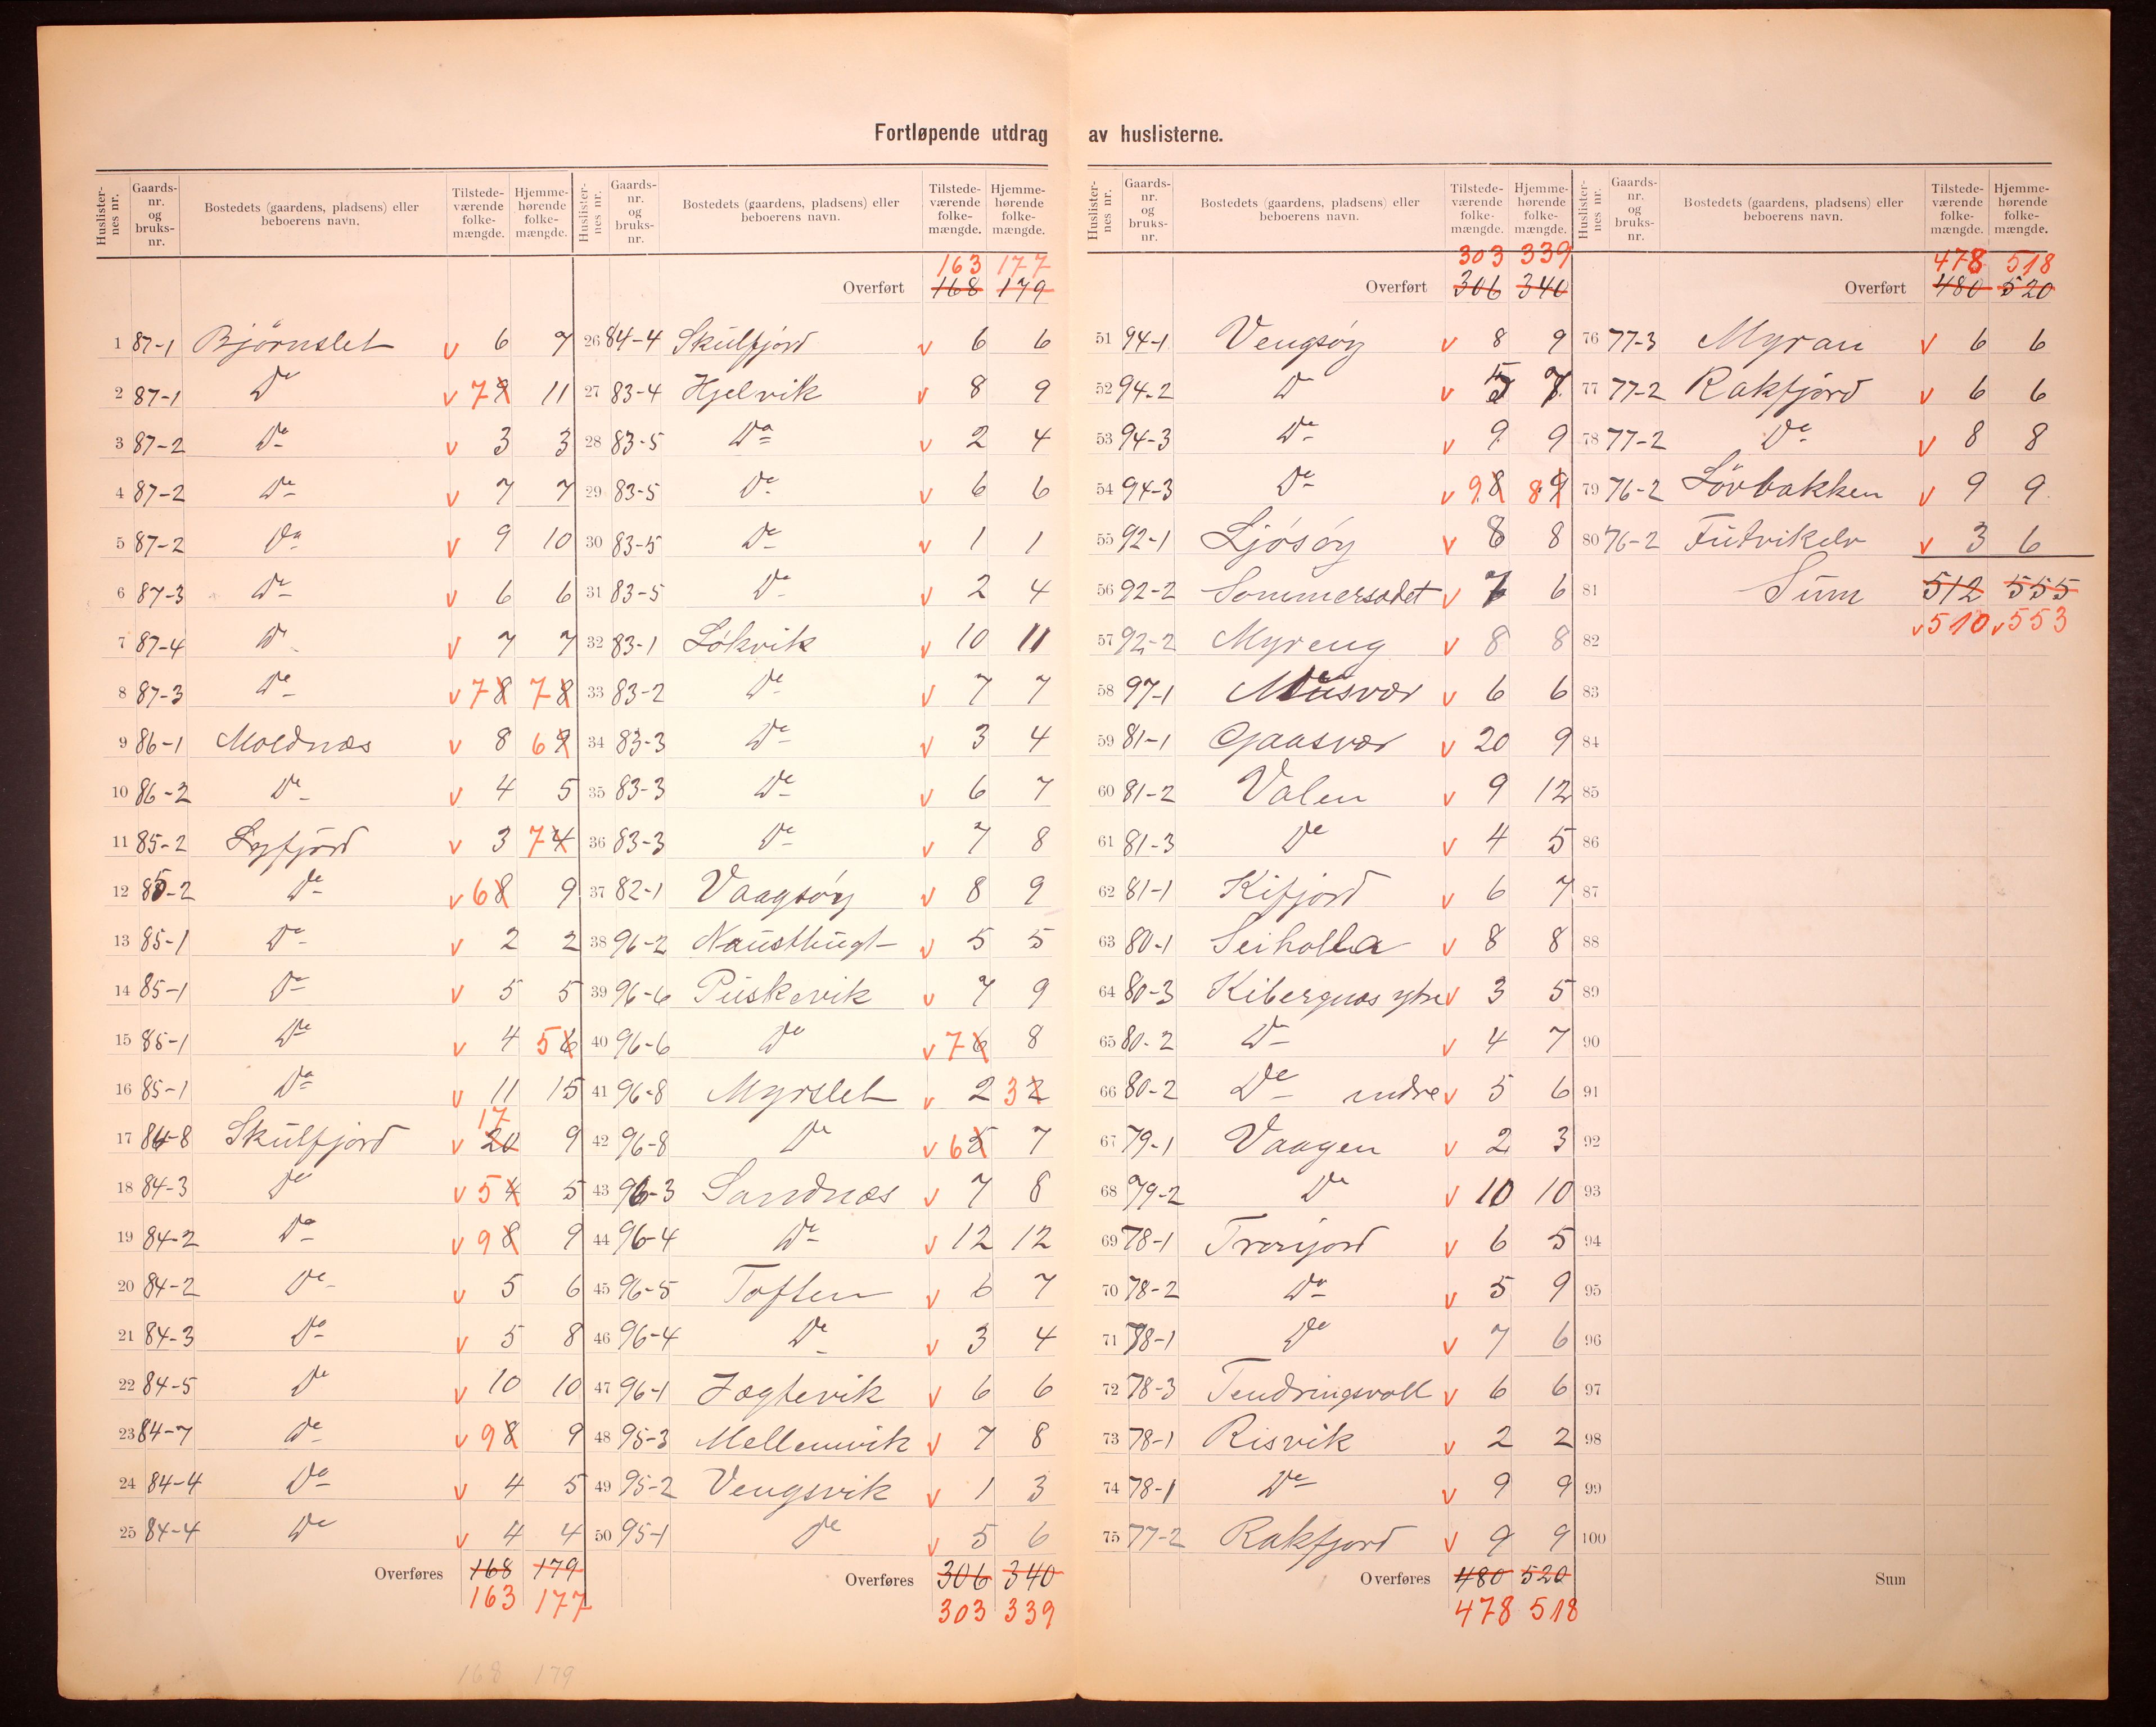 Fortløpende utdrag av huslisterne.
Huslisternes nr. Gaards-nr. og bruks-nr. Bostedets (gaardens, pladsens) eller beboerens navn. Tilstede-værende folke-mængde. Hjemme-hørende folke-mængde.
1 87-1 Bjørnslet v 6 7
2 87-1 Do v 7 9 11
3 87-2 Do v 3 3
4 87-2 Do v 7 7
5 87-2 Do v 9 10
6 87-3 Do v 6 6
7 87-4 Do v 7 7
8 87-3 Do v 7 8 7 8
9 86-1 Moldnæs v 8 6 9
10 86-2 Do v 4 5
11 85-2 Lyfjord v 3 7 4
12 85-2 Do v 6 8 9
13 85-1 Do v 2 2
14 85-1 Do v 5 5
15 85-1 Do v 4 5 6
16 85-1 Do v 11 15
17 84-8 Skulfjord v 17 20 9
18 84-3 Do v 5 4 5
19 84-2 Do v 9 8 9
20 84-2 Do v 5 6
21 84-3 Do v 5 8
22 84-5 Do v 10 10
23 84-7 Do v 9 8 9
24 84-4 Do v 4 5
25 84-4 Do v 4 4
Overføres 168 179
163 177
168 179
Huslisternes nr. Gaards-nr. og bruks-nr. Bostedets (gaardens, pladsens) eller beboerens navn. Tilstede-værende folke-mængde. Hjemme-hørende folke-mængde.
163 177
Overført 168 179
26 84-4 Skulfjord v 6 6
27 83-4 Hjelvik v 8 9
28 83-5 Do v 2 4
29 83-5 Do v 6 6
30 83-5 Do v 1 1
31 83-5 Do v 2 4
32 83-1 Løkvik v 10 11
33 83-2 Do v 7 7
34 83-3 Do v 3 4
35 83-3 Do v 6 7
36 83-3 Do v 7 8
37 82-1 Vaagsøy v 8 9
38 96-2 Nausthugt v 5 5
39 96-6 Piiskevik v 7 9
40 96-6 Do v 7 6 8
41 96-8 Myrslet v 2 3 2
42 96-8 Do v 6 5 7
43 96-3 Sandnæs v 7 8
44 96-4 Do v 12 12
45 96-5 Toften v 6 7
46 96-4 Do v 3 4
47 96-1 Jægtevik v 6 6
48 95-3 Mellemvik v 7 8
49 95-2 Vengsvik v 1 3
50 95-1 Do v 5 6
Overføres 306 340
303 339
Huslisternes nr. Gaards-nr. og bruks-nr. Bostedets (gaardens, pladsens) eller beboerens navn. Tilstede-værende folke-mængde. Hjemme-hørende folke-mængde.
303 339
Overført 306 340
51 94-1 Vengsøy v 8 9
52 94-2 Do v 5 7
53 94-3 Do v 9 9
54 94-3 Do v 9 8 8 9
55 92-1 Ljøsøy v 8 8
56 92-2 Sommersædet v 7 6
57 92-2 Myreng v 8 8
58 97-1 Musvær v 6 6
59 81-1 Gaasvær v 20 9
60 81-2 Valen v 9 12
61 81-3 Do v 4 5
62 81-1 Kifjord v 6 7
63 80-1 Seiholla v 8 8
64 80-3 Kibergnæs ytre v 3 5
65 80-2 Do v 4 7
66 80-2 Do indre v 5 6
67 79-1 Vaagen v 2 3
68 79-2 Do v 10 10
69 78-1 v 6 5
70 78-2 Do v 5 9
71 78-1 Do v 7 6
72 78-3 Tendringsvoll v 6 6
73 78-1 Risvik v 2 2
74 78-1 Do v 9 9
75 77-2 Rakfjord v 9 9
Overføres 480 520
478 518
Huslisternes nr. Gaards-nr. og bruks-nr. Bostedets (gaardens, pladsens) eller beboerens navn. Tilstede-værende folke-mængde. Hjemme-hørende folke-mængde.
478 518
Overført 480 520
76 77-3 Myran v 6 6
77 77-2 Rakfjord v 6 6
78 77-2 Do v 8 8
79 76-2 Lövbakken v 9 9
80 76-2 Futrikelv v 3 6
81 Sum 512 555
82 v 510 v 553
83
84
85
86
87
88
89
90
91
92
93
94
95
96
97
98
99
100
Sum